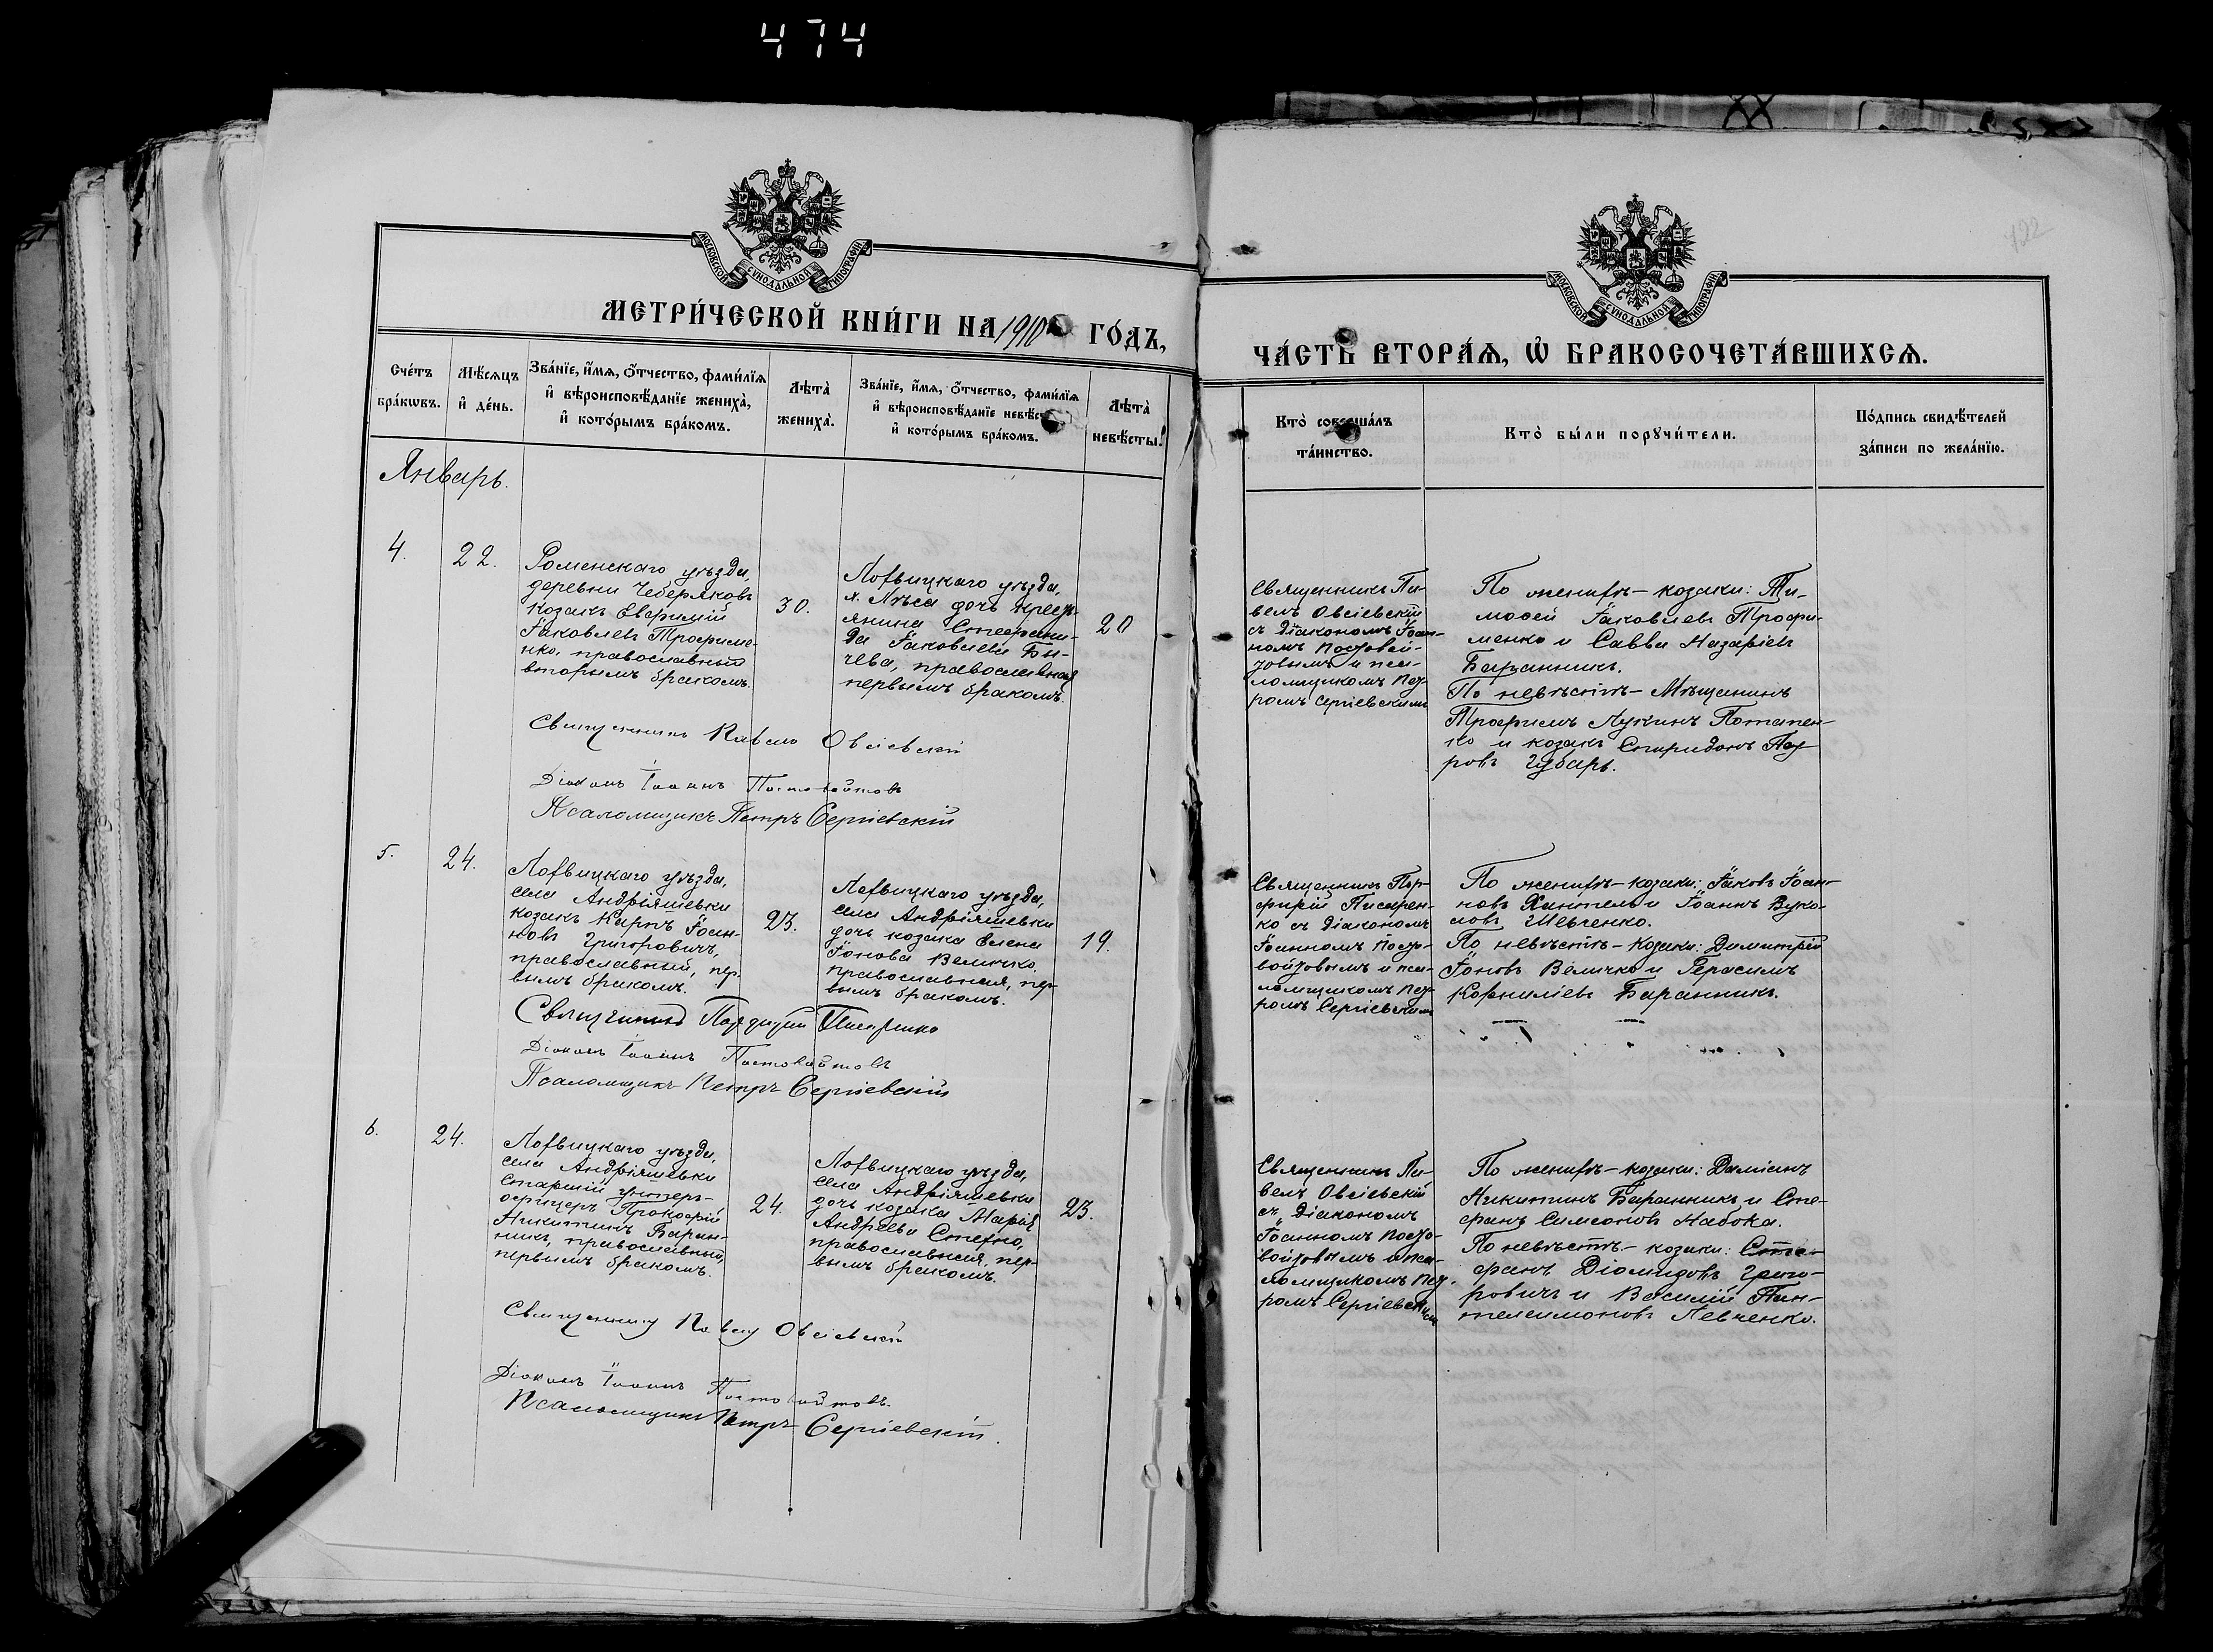 474
422
МОСКОВСКОЙ СѴНОДАЛЬНОЙ ТИПОГРАФІИ
МЕТРИ́ЧЕСКОЙ КНИ́ГИ НА 1910 ГО́ДЪ,
Сче́тъ бра́кѡвъ.
Мѣ́сяцъ и҆ де́нь.
Зва́нїе, и҆́мѧ, ѻ҆́тчество, фами́лїѧ
и҆ вѣроисповѣ́данїе жениха̀,
и҆ кото́рымъ бра́комъ.
Лѣта̀ жениха̀.
Зва́нїе, и҆́мѧ, ѻ҆́тчество, фами́лїѧ
и҆ вѣроисповѣ́данїе невѣ́сты
и҆ кото́рымъ бра́комъ.
Лѣта̀ невѣ́сты.
Январь.
4.
22.
Роменскаго уѣзда,
деревни Чеберяковъ
козакъ Евфимій
Іаковлевъ Трофиме-
нко, православный
вторымъ бракомъ.
30.
Лохвицкаго уѣзда,
дочь крест-
янина Стефани-
да Іаковлева Бы-
чева, православная
первымъ бракомъ.
20
Священникъ Павелъ Овсіевскій
Діаконъ Іоаннъ Постовойтовъ
Псаломщикъ Петръ Сергіевскій
5.
24.
Лохвицкаго уѣзда,
села Андріяшевки
козакъ Карпъ Іоан-
новъ Григоровичъ,
православный, пер-
вымъ бракомъ.
23.
Лохвицкаго уѣзда,
села Андріяшевки
дочь козака Елена
Іонова Величко,
православная, пер-
вымъ бракомъ.
19.
Священникъ Порфирій Писаренко
Діаконъ Іоаннъ Постовойтовъ
Псаломщикъ Петръ Сергіевскій
6.
24.
Лохвицкаго уѣзда,
села Андріяшевки
старшій унтеръ-
офицеръ Прокофій
Никитинъ Баран-
никъ, православный,
первымъ бракомъ.
24.
Лохвицкаго уѣзда,
села Андріяшевки
дочь козака Марія
Андреева Стехно,
православная, пер-
вымъ бракомъ.
23.
Священникъ Павелъ Овсіевскій
Діаконъ Іоаннъ Постовойтовъ.
Псаломщикъ Петръ Сергіевскій.
МОСКОВСКОЙ СѴНОДАЛЬНОЙ ТИПОГРАФІИ
ЧА́СТЬ ВТОРА́Ѧ, Ѽ БРАКОСОЧЕТА́ВШИХСѦ.
Кто̀ соверша́лъ
та́инство.
Кто̀ бы́ли порꙋчи́тели.
По́дпись свидѣ́телей
за́писи по жела́нїю.
Священникъ Па-
велъ Овсіевскій
съ діакономъ Іоан-
номъ Постовой-
товымъ и пса-
ломщикомъ Пет-
ромъ Сергіевскимъ
По женихѣ – козаки: Ти-
мофей Іаковлевъ Трофи-
менко и Савва Назаріевъ
Баранникъ.
По невѣстѣ – Мѣщанинъ
Трофимъ Лукинъ Потапен-
ко и козакъ Спиридонъ Пет-
ровъ Губарь.
Священникъ Пор-
фирій Писарен-
ко съ діакономъ
Іоанномъ Посто-
войтовымъ и пса-
ломщикомъ Пет-
ромъ Сергіевскимъ
По женихѣ – козаки: Іаковъ Іоан-
новъ и Іоаннъ Вуко-
ловъ Шевченко.
По невѣстѣ – козаки: Димитрій
Іоновъ Величко и Герасимъ
Корниліевъ Баранникъ.
Священникъ Па-
велъ Овсіевскій
съ діакономъ
Іоанномъ Посто-
войтовымъ и пса-
ломщикомъ Пет-
ромъ Сергіевскимъ
По женихѣ – козаки: Даміанъ
Никитинъ Баранникъ и Сте-
фанъ Симеоновъ Набока.
По невѣстѣ – козаки: Сте-
фанъ Діомидовъ Григо-
ровичъ и Василій Пан-
телеимоновъ Левченко.